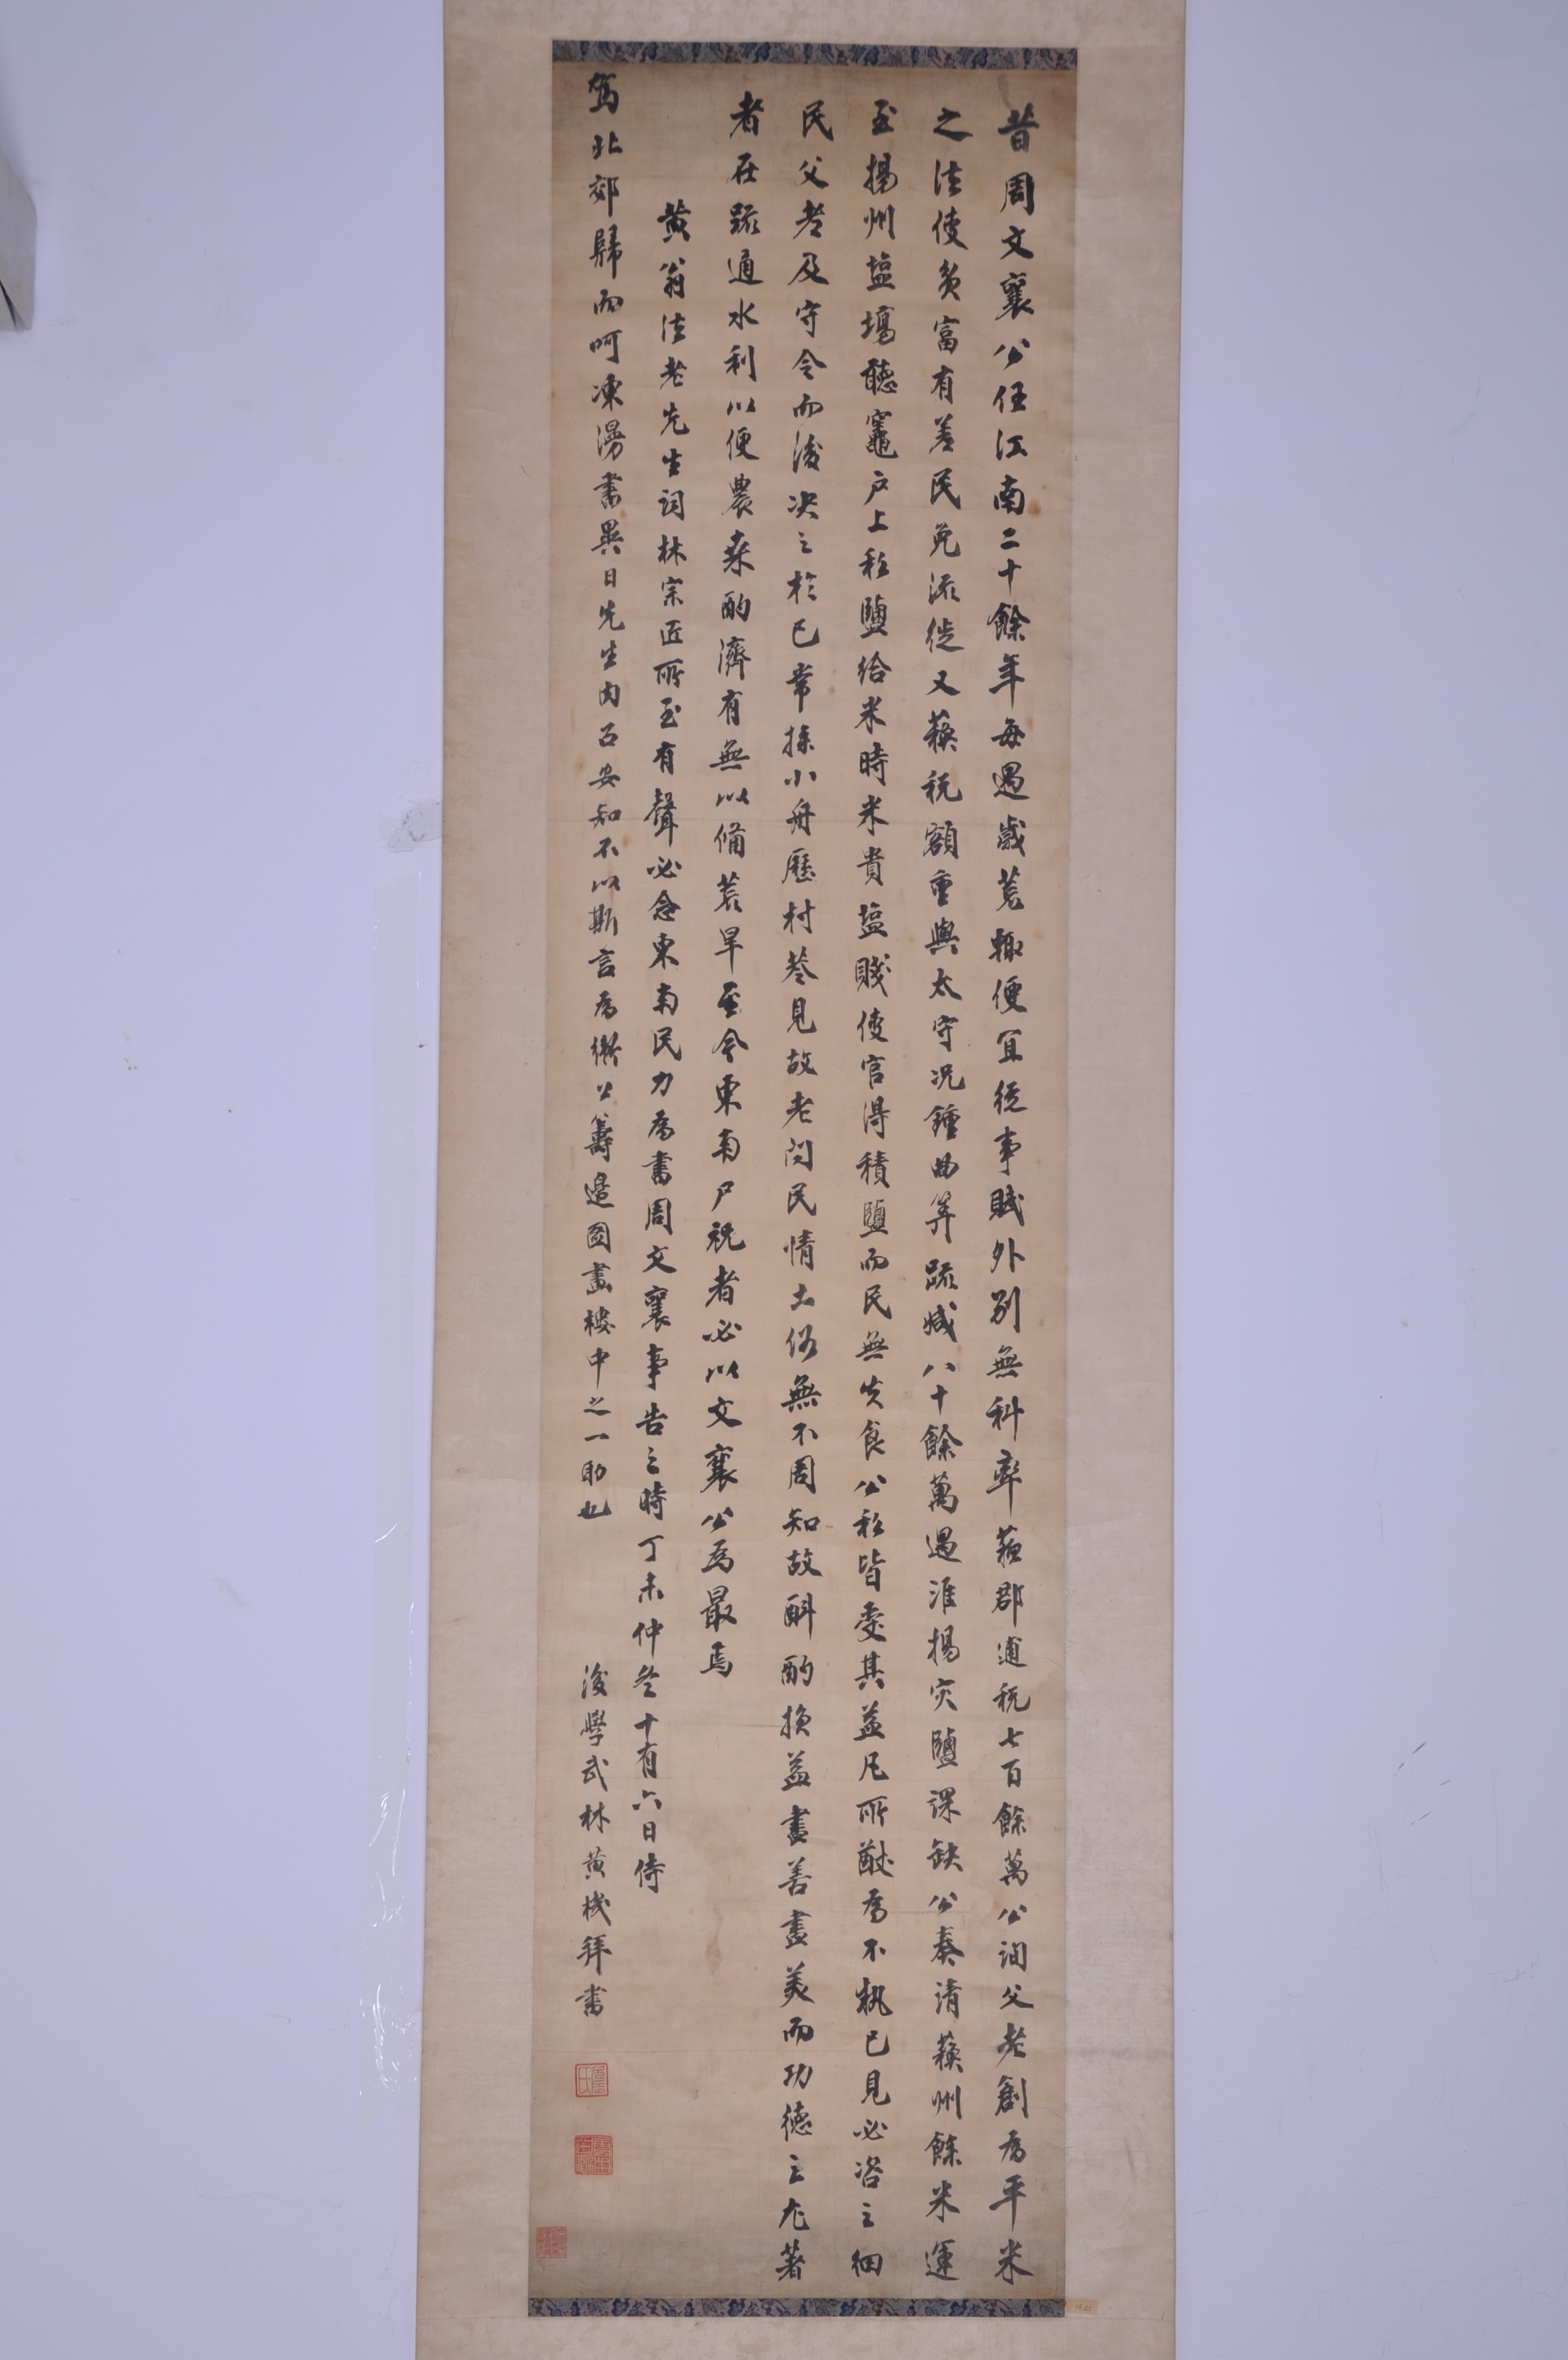 昔周文襄公任江南二十餘年每遇歲荒輙便宜從事賦外別無科率蘓郡逋税七百餘萬公詢父老創爲平米
之法使貧富有差民免流徙又蘓税額重與太守况鍾曲筭疏減八十餘萬遇淮揚灾鹽課缺公奏請蘓州餘米運
至揚州塩塲聽竈户上私鹽給米時米貴塩賤使官得積鹽而民無失食公私皆受其益凡所猷爲不執已見必咨之細
民父老及守令而後决之於已常操小舟歷村巷見故老問民情土俗無不周知故斟酌損益盡善盡美而功德之尤著
者在疏通水利以便農桑酌濟有無以備荒旱至今東南尸祝者必以文襄公爲最焉
黄翁法老先生詞林宗匠所至有聲必念東南民力爲書周文襄事告之時丁未仲冬十有六日侍
駕北郊歸而呵凍漫書異日先生内召安知不以斯言爲衛公籌邊圖畫樓中之一助也
後學武林黄機拜書